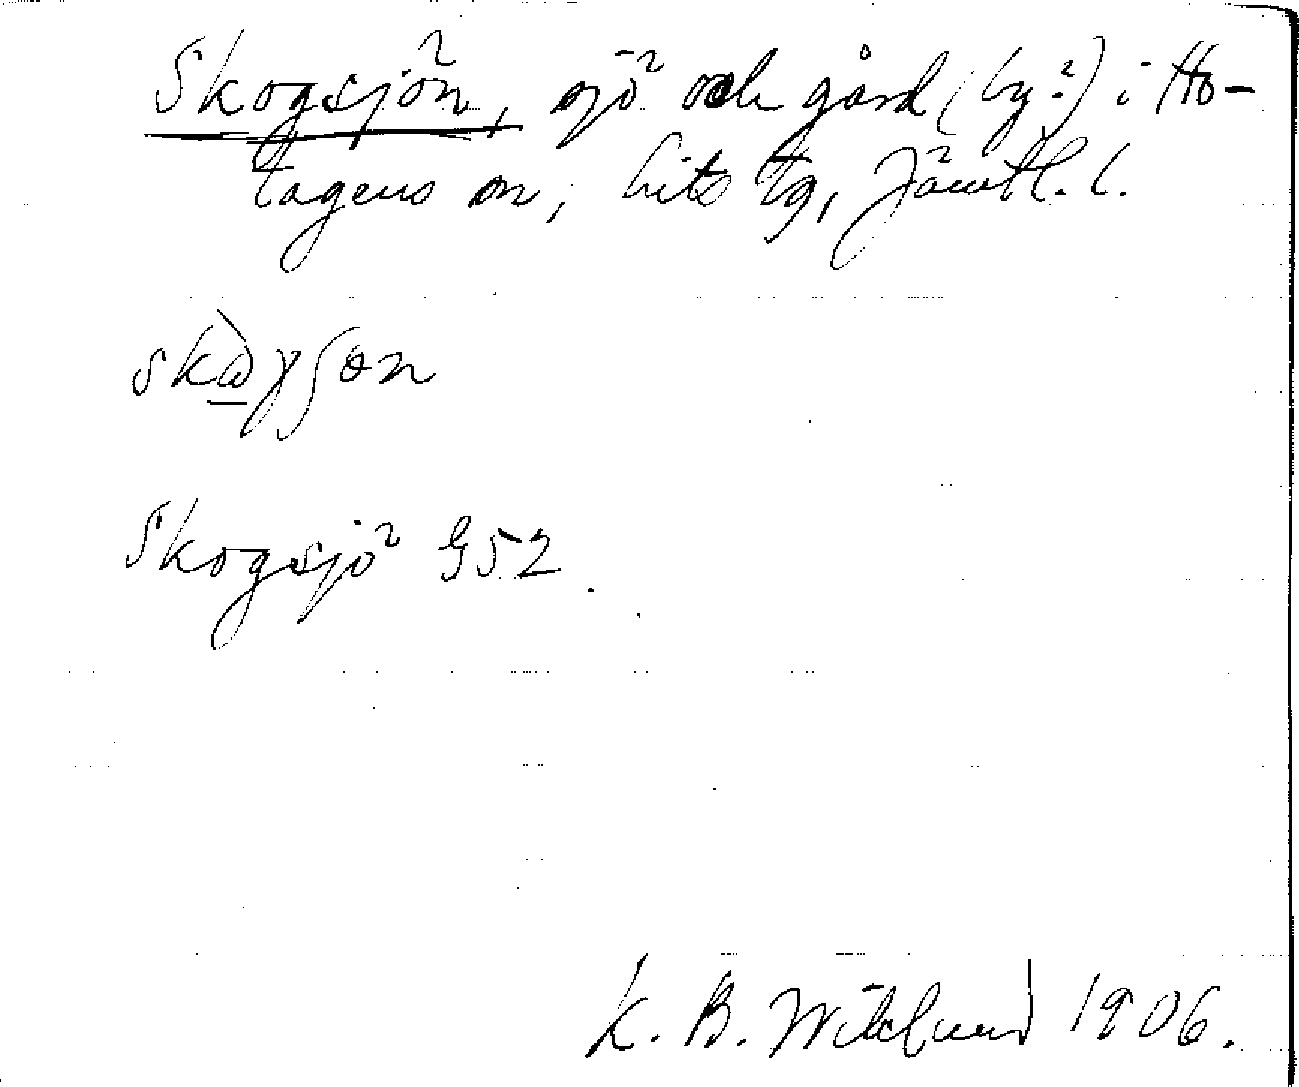 Skogsjön, sjö och gård (by?) i Ho-
tagens sn, Lits tg, Jämtl. l.
skòγʃɵn
Skogsjö G52.
K. B. Wiklund 1906.